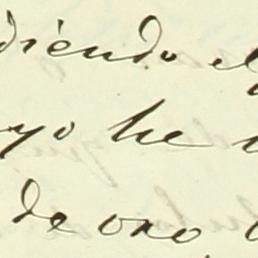 diendo el
yo he
de oro